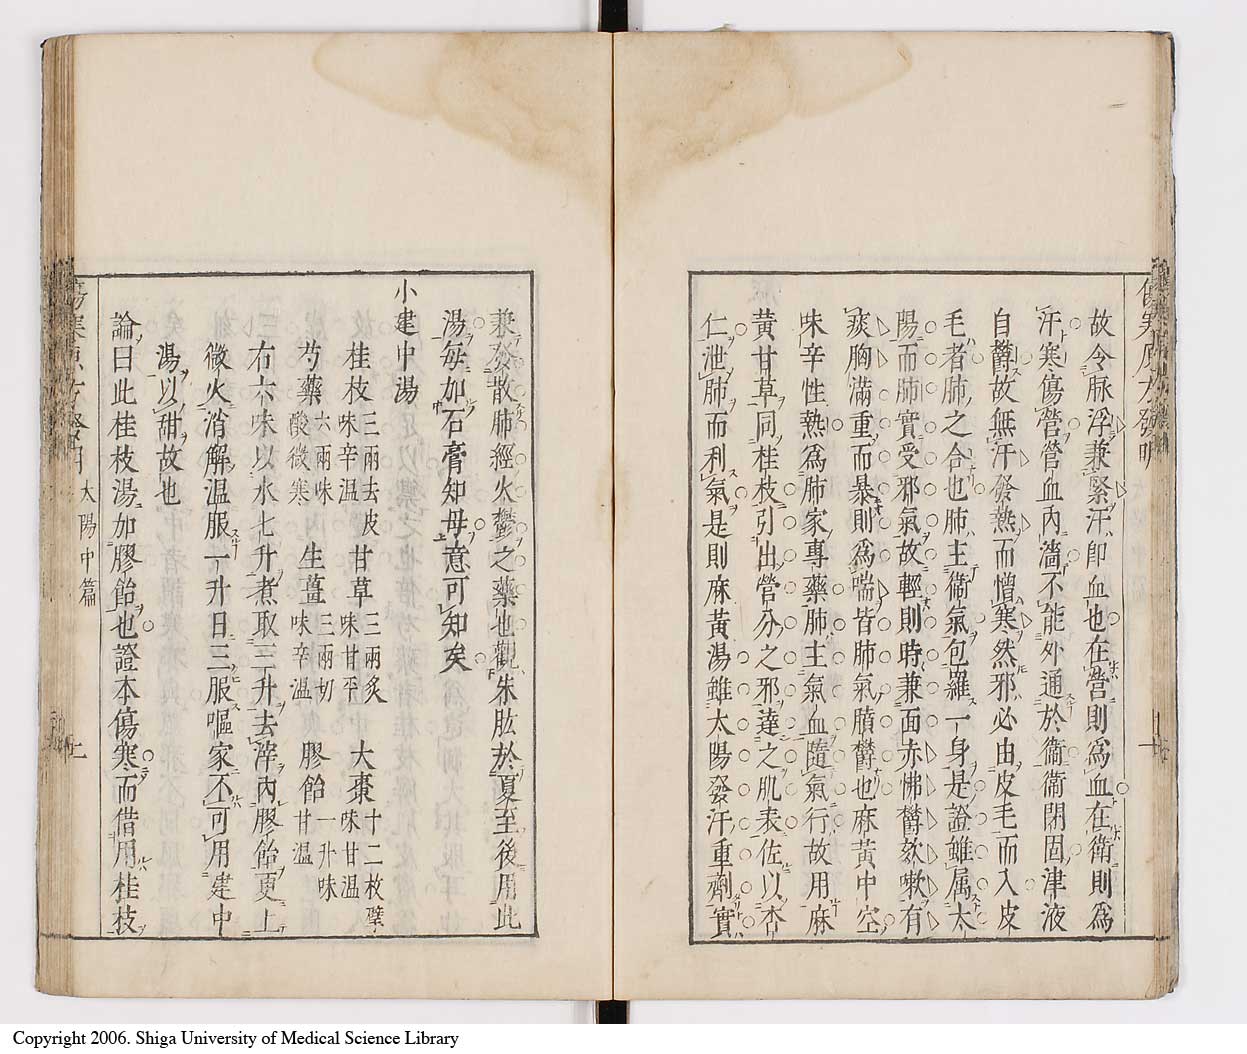 傷寒原方發明
故令脉浮兼緊汗卽血也在營則爲血在衛則爲
汗寒傷營營血內濇不能外通於衛衛閉固津液
自欝故無汗發熱而憎寒然邪必由皮毛而入皮
毛者肺之合也肺主衛氣包羅一身是證雖属太
陽而肺實受邪氣故輕則時兼面赤怫欝欬嗽有
痰胸滿重而暴則爲喘皆肺氣膹欝也麻黃中空
味辛性熱爲肺家專藥肺主氣血隨氣行故用麻
黃甘草同桂枝引出營分之邪達之肌表佐以杏
仁泄肺而利氣是則麻黃湯雖太陽發汗重劑實
兼發散肺經火鬱之藥也觀朱肱於夏至後用此
湯毎加石膏知母意可知矣
小建中湯
桂枝 三兩去皮味辛温 甘草 三兩炙味甘平 大棗 十二枚擘味甘温
芍藥 六兩味酸微寒 生薑 三兩切味辛温 膠飴 一升味甘温
右六味以水七升煮取三升去滓內膠飴更上
微火消解温服一升日三服嘔家不可用建中
湯以甜故也
論曰此桂枝湯加膠飴也證本傷寒而借用桂枝
太陽中篇
Copyright 2006. Shiga University of Medical Science Library